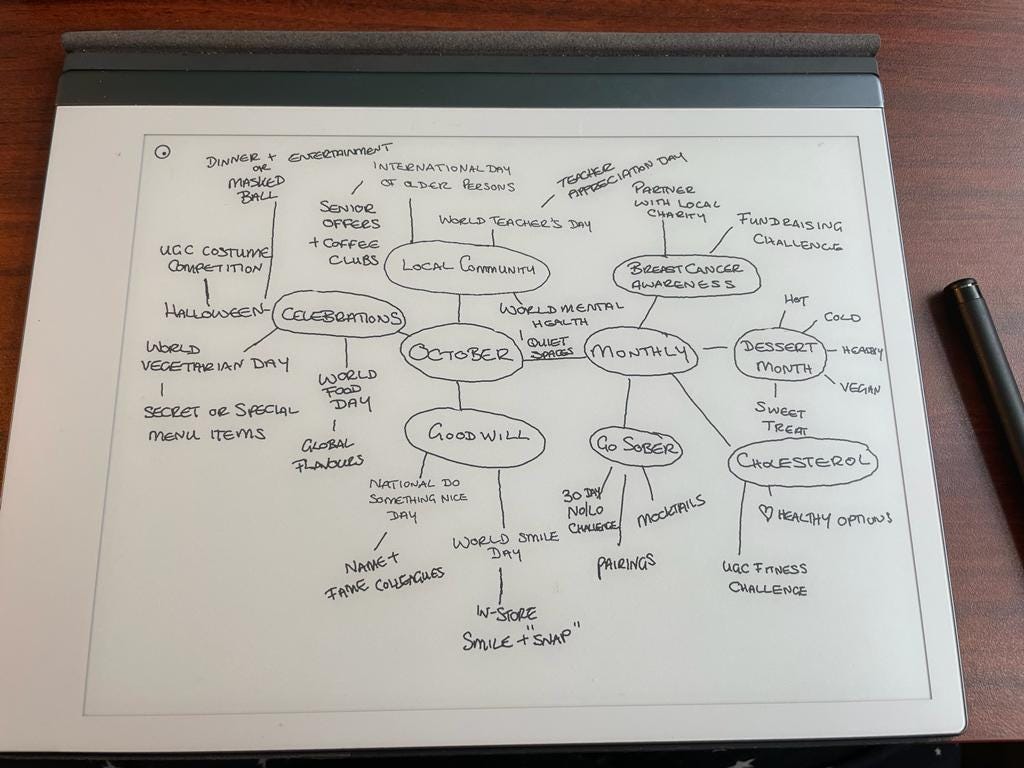 DINNER + ENTERTAINMENT
OR
MASKED
BALL
INTERNATIONAL DAY
OF OLDER PERSONS
SENIOR
OFFERS
+ COFFEE
CLUBS
TEACHER
APPRECIATION DAY
WORLD TEACHER'S DAY
PARTNER
WITH LOCAL
CHARITY
FUNDRAISING
CHALLENGE
UGC COSTUME
COMPETITION
HALLOWEEN
CELEBRATIONS
LOCAL COMMUNITY
BREAST CANCER
AWARENESS
WORLD MENTAL
HEALTH
QUIET
SPACES
OCTOBER
MONTHLY
DESSERT
MONTH
HOT
COLD
VEGAN
SWEET
TREAT
WORLD
VEGETARIAN DAY
SECRET OR SPECIAL
MENU ITEMS
WORLD
FOOD
DAY
GLOBAL
FLAVOURS
GOODWILL
NATIONAL DO
SOMETHING NICE
DAY
NAME +
FAME COLLEAGUES
WORLD SMILE
DAY
IN-STORE
SMILE + "SNAP"
GO SOBER
30 DAY
NO/LO
CHALLENGE
PAIRINGS
MOCKTAILS
CHOLESTEROL
♡ HEALTHY OPTIONS
UGC FITNESS
CHALLENGE